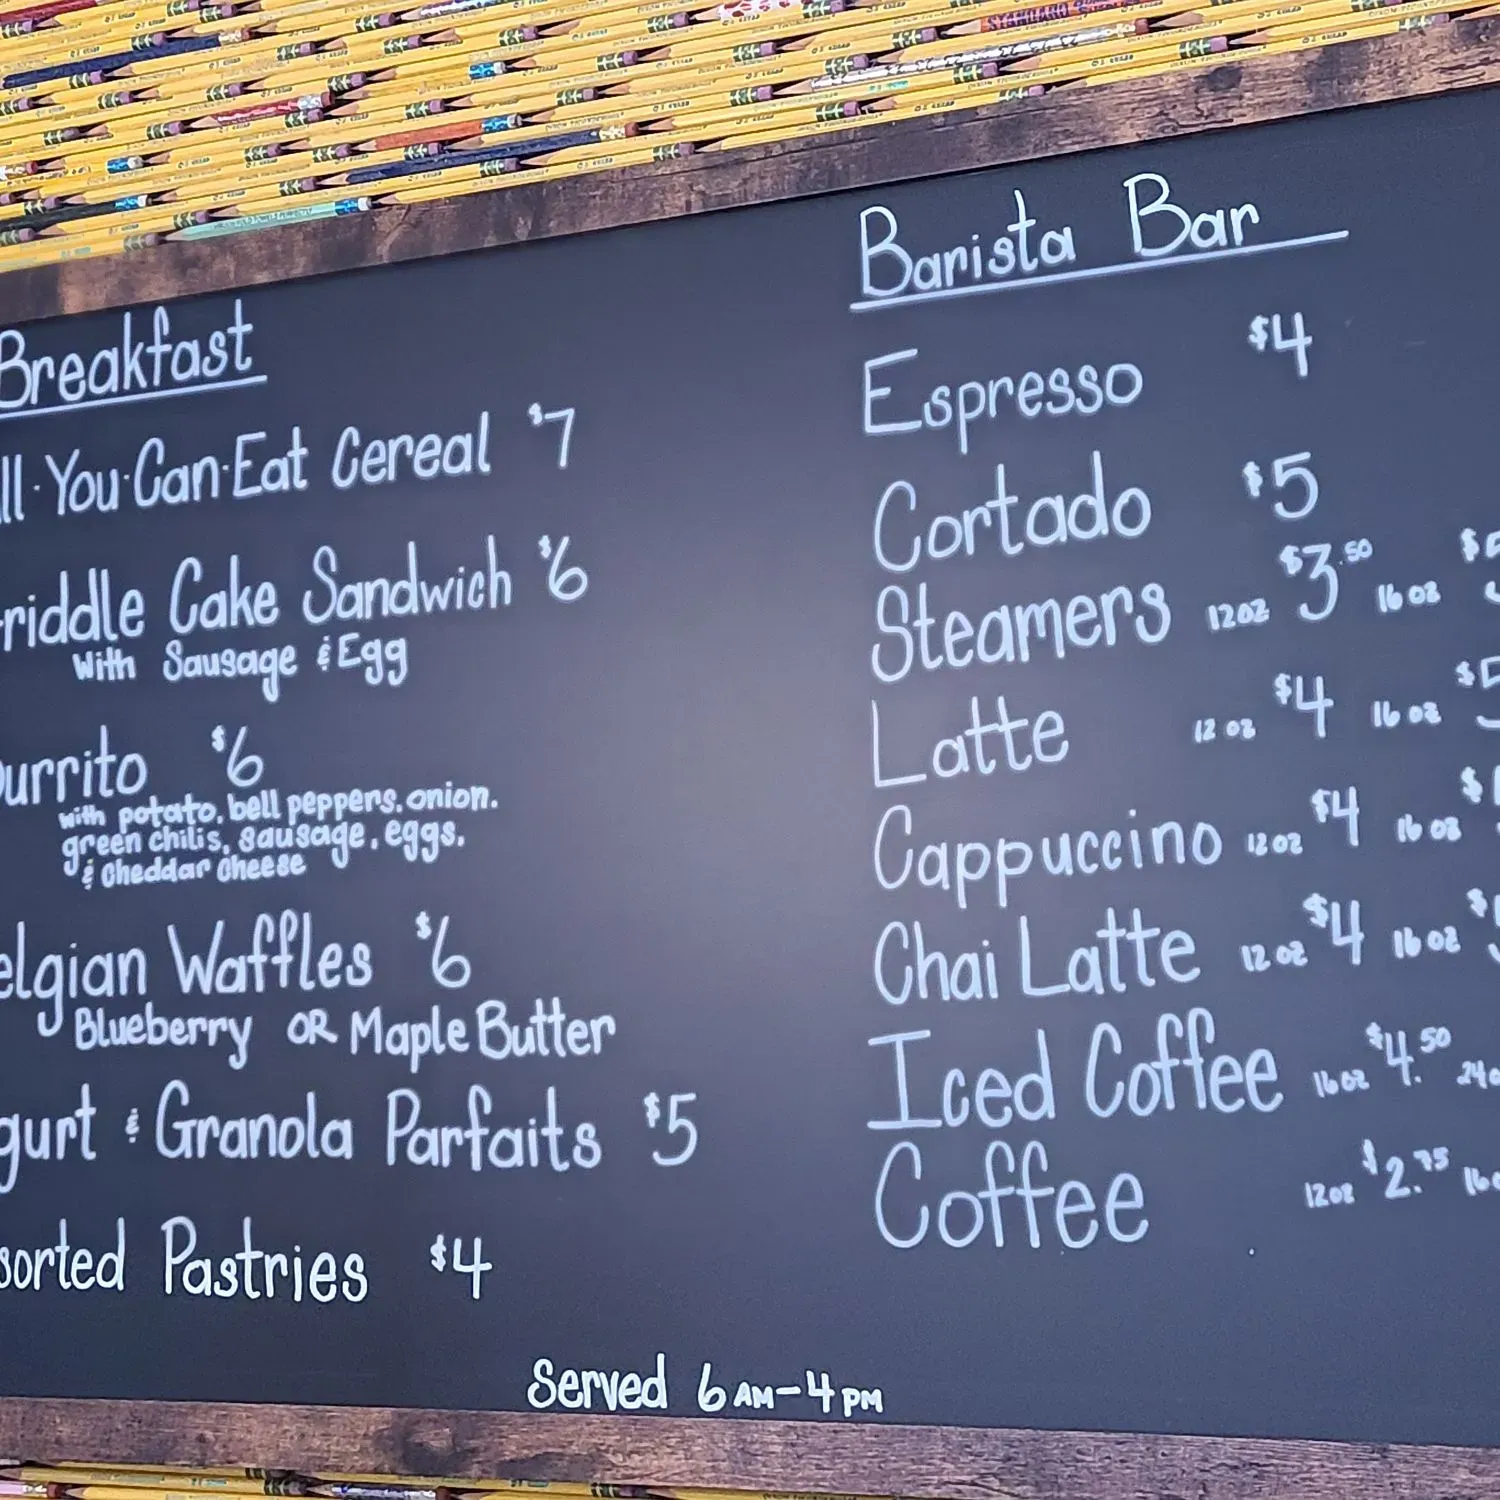 Breakfast
ll·You·Can·Eat Cereal $7
riddle Cake Sandwich $6
with Sausage & Egg
urrito $6
with potato, bell peppers, onion,
green chilis, sausage, eggs,
& cheddar cheese
elgian Waffles $6
Blueberry OR Maple Butter
gurt & Granola Parfaits $5
sorted Pastries $4
Barista Bar
Espresso $4
Cortado $5
Steamers 12oz $3.50 16oz $5
Latte 12oz $4 16oz $5
Cappuccino 12oz $4 16oz $
Chai Latte 12oz $4 16oz $
Iced Coffee 16oz $4.50 24o
Coffee 12oz $2.75 16o
Served 6AM-4PM